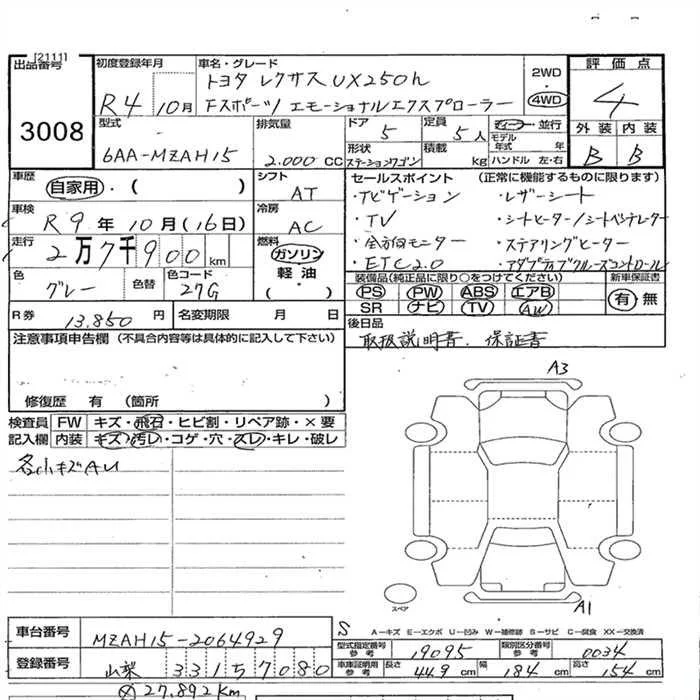 [2111]
出品番号
3008
初度登録年月
R4 10月
車名・グレード
トヨタ レクサス UX250h
Fスポーツ/エモーショナルエクスプローラー
2WD
4WD
評価点
4
外装 内装
B B
型式
6AA-MZAH15
排気量
2.000 CC
ドア
5
定員
5人
形状
ステーションワゴン
積載
kg
ディーラー・並行
モデル
年式 年
ハンドル 左・右
車歴
自家用・( )
シフト
AT
車検
R9年10月(16日)
冷房
AC
走行
2万7千900km
燃料
ガソリン
軽油
( ・ )
色
グレー
色替
色コード
27G
R券
13,850 円
名変期限 月 日
セールスポイント (正常に機能するものに限ります)
・ナビゲーション ・レザーシート
・TV ・シートヒーター/シートベンチレーター
・全方向モニター ・ステアリングヒーター
・ETC2.0 ・アダプティブクルーズコントロール
装備品(純正品に限り○をつけてください)
PS PW ABS エアB
SR ナビ TV AW
新車保証書
有・無
後日品
取扱説明書. 保証書
注意事項申告欄(不具合内容等は具体的に記入して下さい)
修復歴 有 (箇所 )
検査員
記入欄
FW キズ・飛石・ヒビ割・リペア跡・×要
内装 キズ・汚レ・コゲ・穴・スレ・キレ・破レ
各小キズAU
A3
A1
スペア
S
A−キズ E−エクボ U−凹み W−補修跡 S−サビ C−腐食 XX−交換済
車台番号
MZAH15-2064929
登録番号
山梨 331 57080
型式指定番号
参考
19095
類別区分番号
参考
0034
車庫証明用
参考
長さ 449cm 幅 184cm 高さ 154cm
27,892km